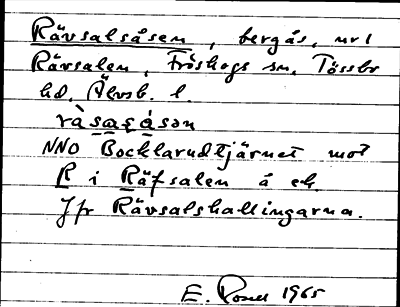 Rävsalsåsen, bergås, nr 1
Rävsalen, Fröskogs sn, Tössbo
hd, Älvsb. l.
ràsaʂåsən
NNO Bocklarudtjärnet mot
R i Räfsalen å ek.
Jfr Rävsalshallingarna.
E. 1965